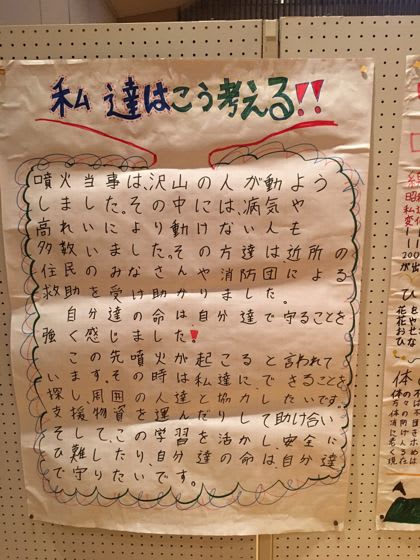 私達はこう考える!!
噴火当事は、沢山の人が動よう
しました。その中には、病気や
高れいにより動けない人も
多数いました。その方達は近所の
住民のみなさんや消防団による
救助を受け助かりました。
自分達の命は自分達で守ることを
強く感じました!
この先噴火が起こると言われて
います。その時は私達に、できることを
探し、周囲の人達と協力したいです。
支援物資を運んだりして助け合い
そして、この学習を活かし、安全に
ひ難したり自分達の命は、自分達
で守りたいです。